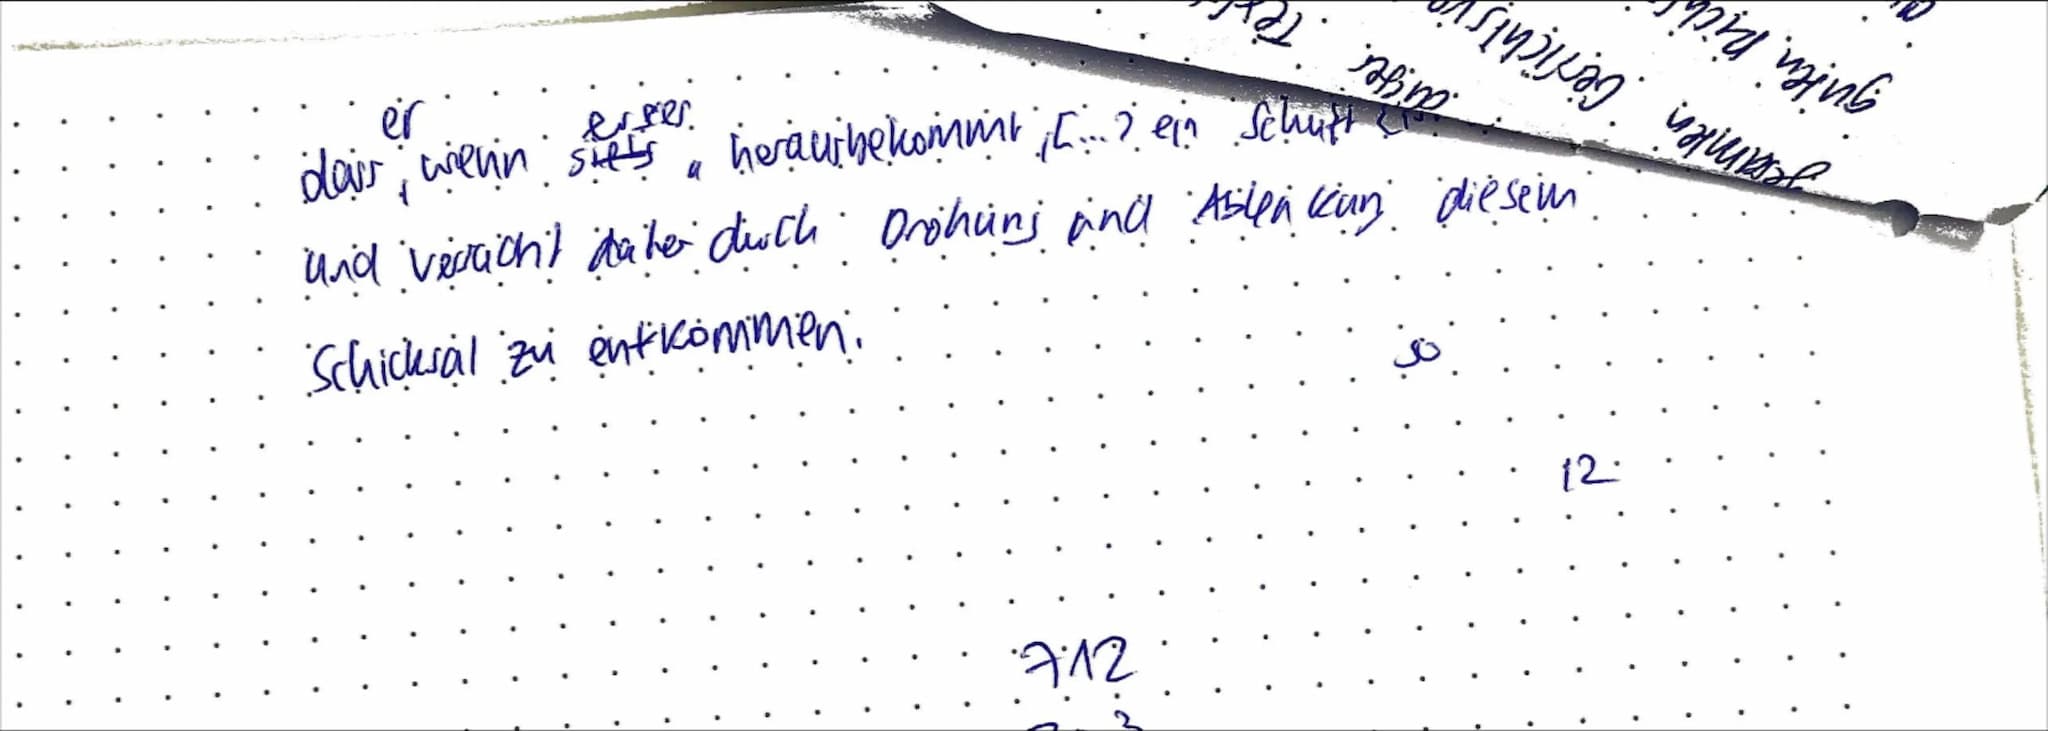 er
dass, wenn erster „herausbekommt, [...] ein Schuft
und versucht daher durch Drohung und Ablenkung diesem
Schicksal zu entkommen.
50
12
712
gesamten
guten Richt
Gerichtsv